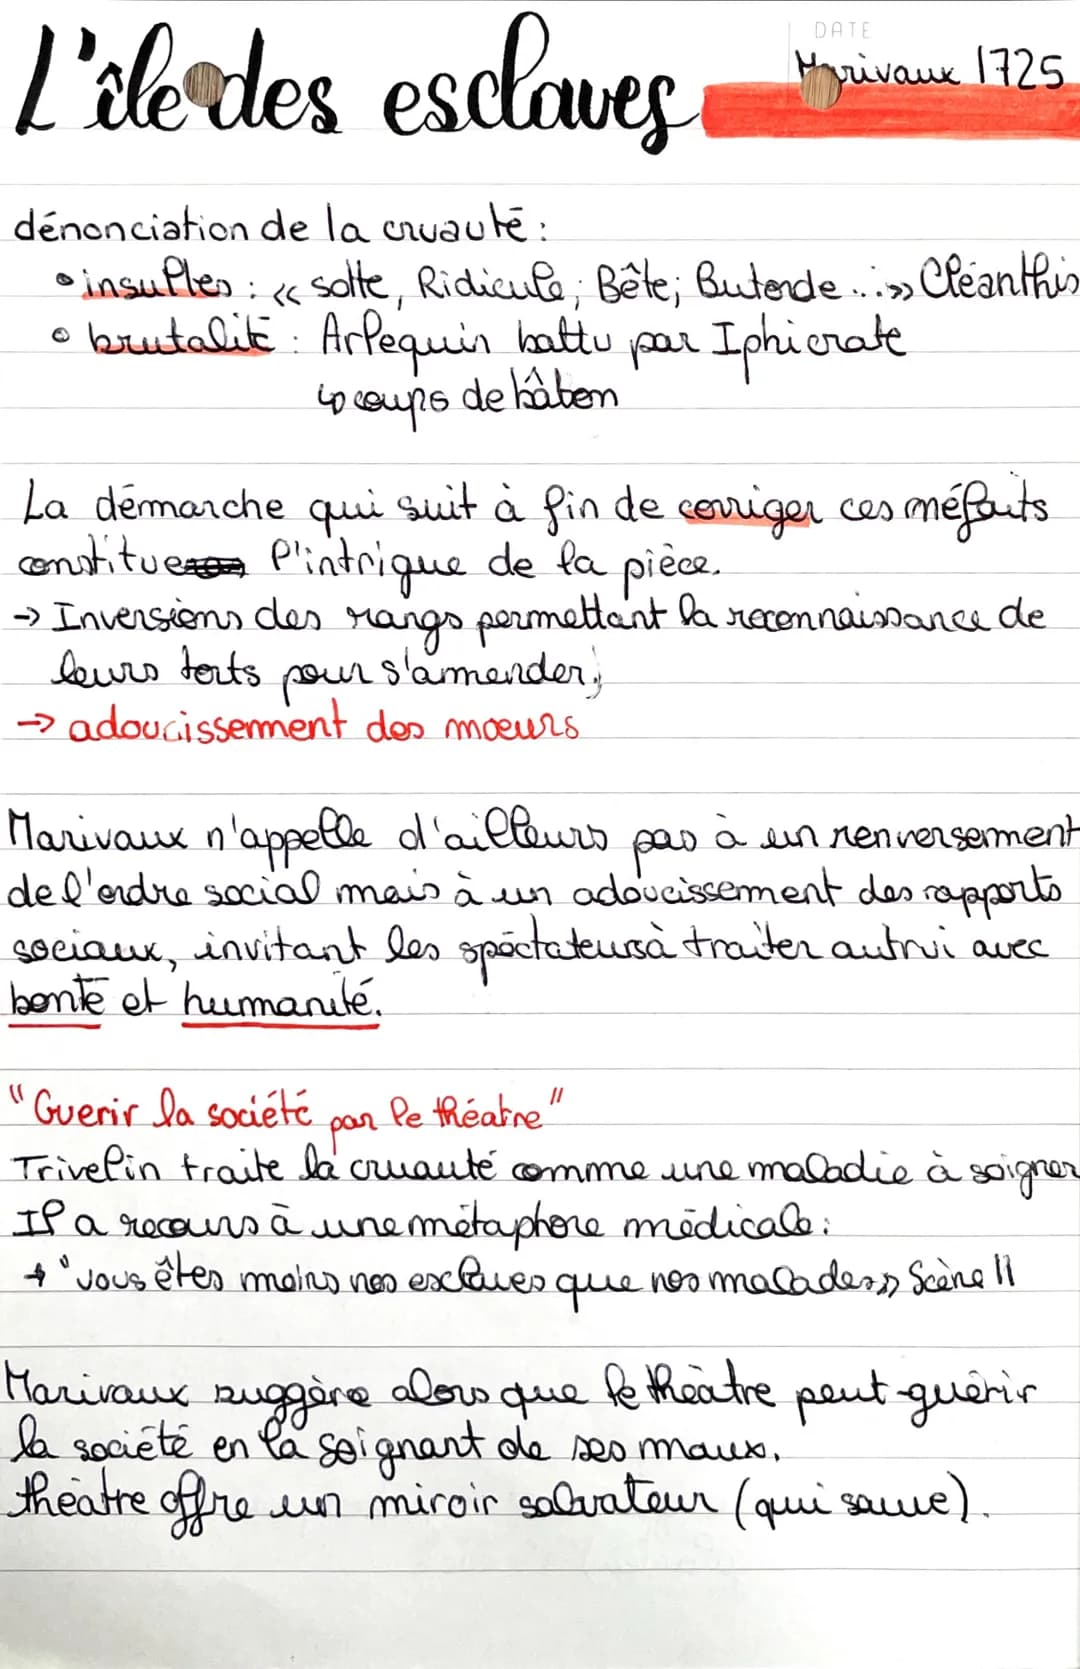 L'île des esclaves
DATE
Marivaux 1725
dénonciation de la cruauté :
• insultes : << sotte, Ridicule ; Bête ; Butorde ... ; >> Cléanthis
• brutalité : Arlequin battu par Iphicrate
↳ coups de bâton
La démarche qui suit à fin de corriger ces méfaits
constitue l'intrigue de la pièce.
-> Inversions des rangs permettant la reconnaissance de
leurs torts pour s'amender ;
-> adoucissement des mœurs
Marivaux n'appelle d'ailleurs pas à un renversement
de l'ordre social mais à un adoucissement des rapports
sociaux, invitant les spéctateurs à traiter autrui avec
bonté et humanité.
"Guerir la société par le théatre"
Trivelin traite la cruauté comme une maladie à soigner
Il a recours à une métaphore médicale :
→ "vous êtes moins nos esclaves que nos malades >> Scène II
Marivaux suggère alors que le théâtre peut guérir
la société en la soignant de ses maux.
théâtre offre un miroir salvateur (qui sauve).